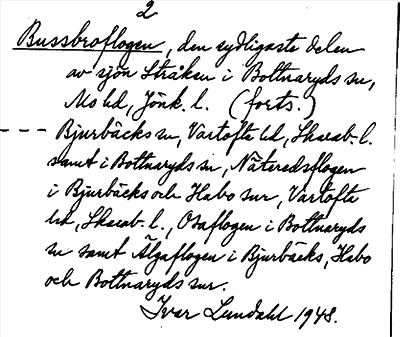 2
Bussbroflogen, den sydligaste delen
av sjön Stråken i Bottnaryds sn,
Mo hd, Jönk. l. (forts.)
Bjurbäcks sn, Vartofta hd, Skarab. l.
samt i Bottnaryds sn, Näteredsflogen
i Bjurbäcks och Habo snr, Vartofta
hd, Skarab. l., Osaflogen i Bottnaryds
sn samt Älgaflogen i Bjurbäcks, Habo
och Bottnaryds snr.
Ivar Lundahl 1948.